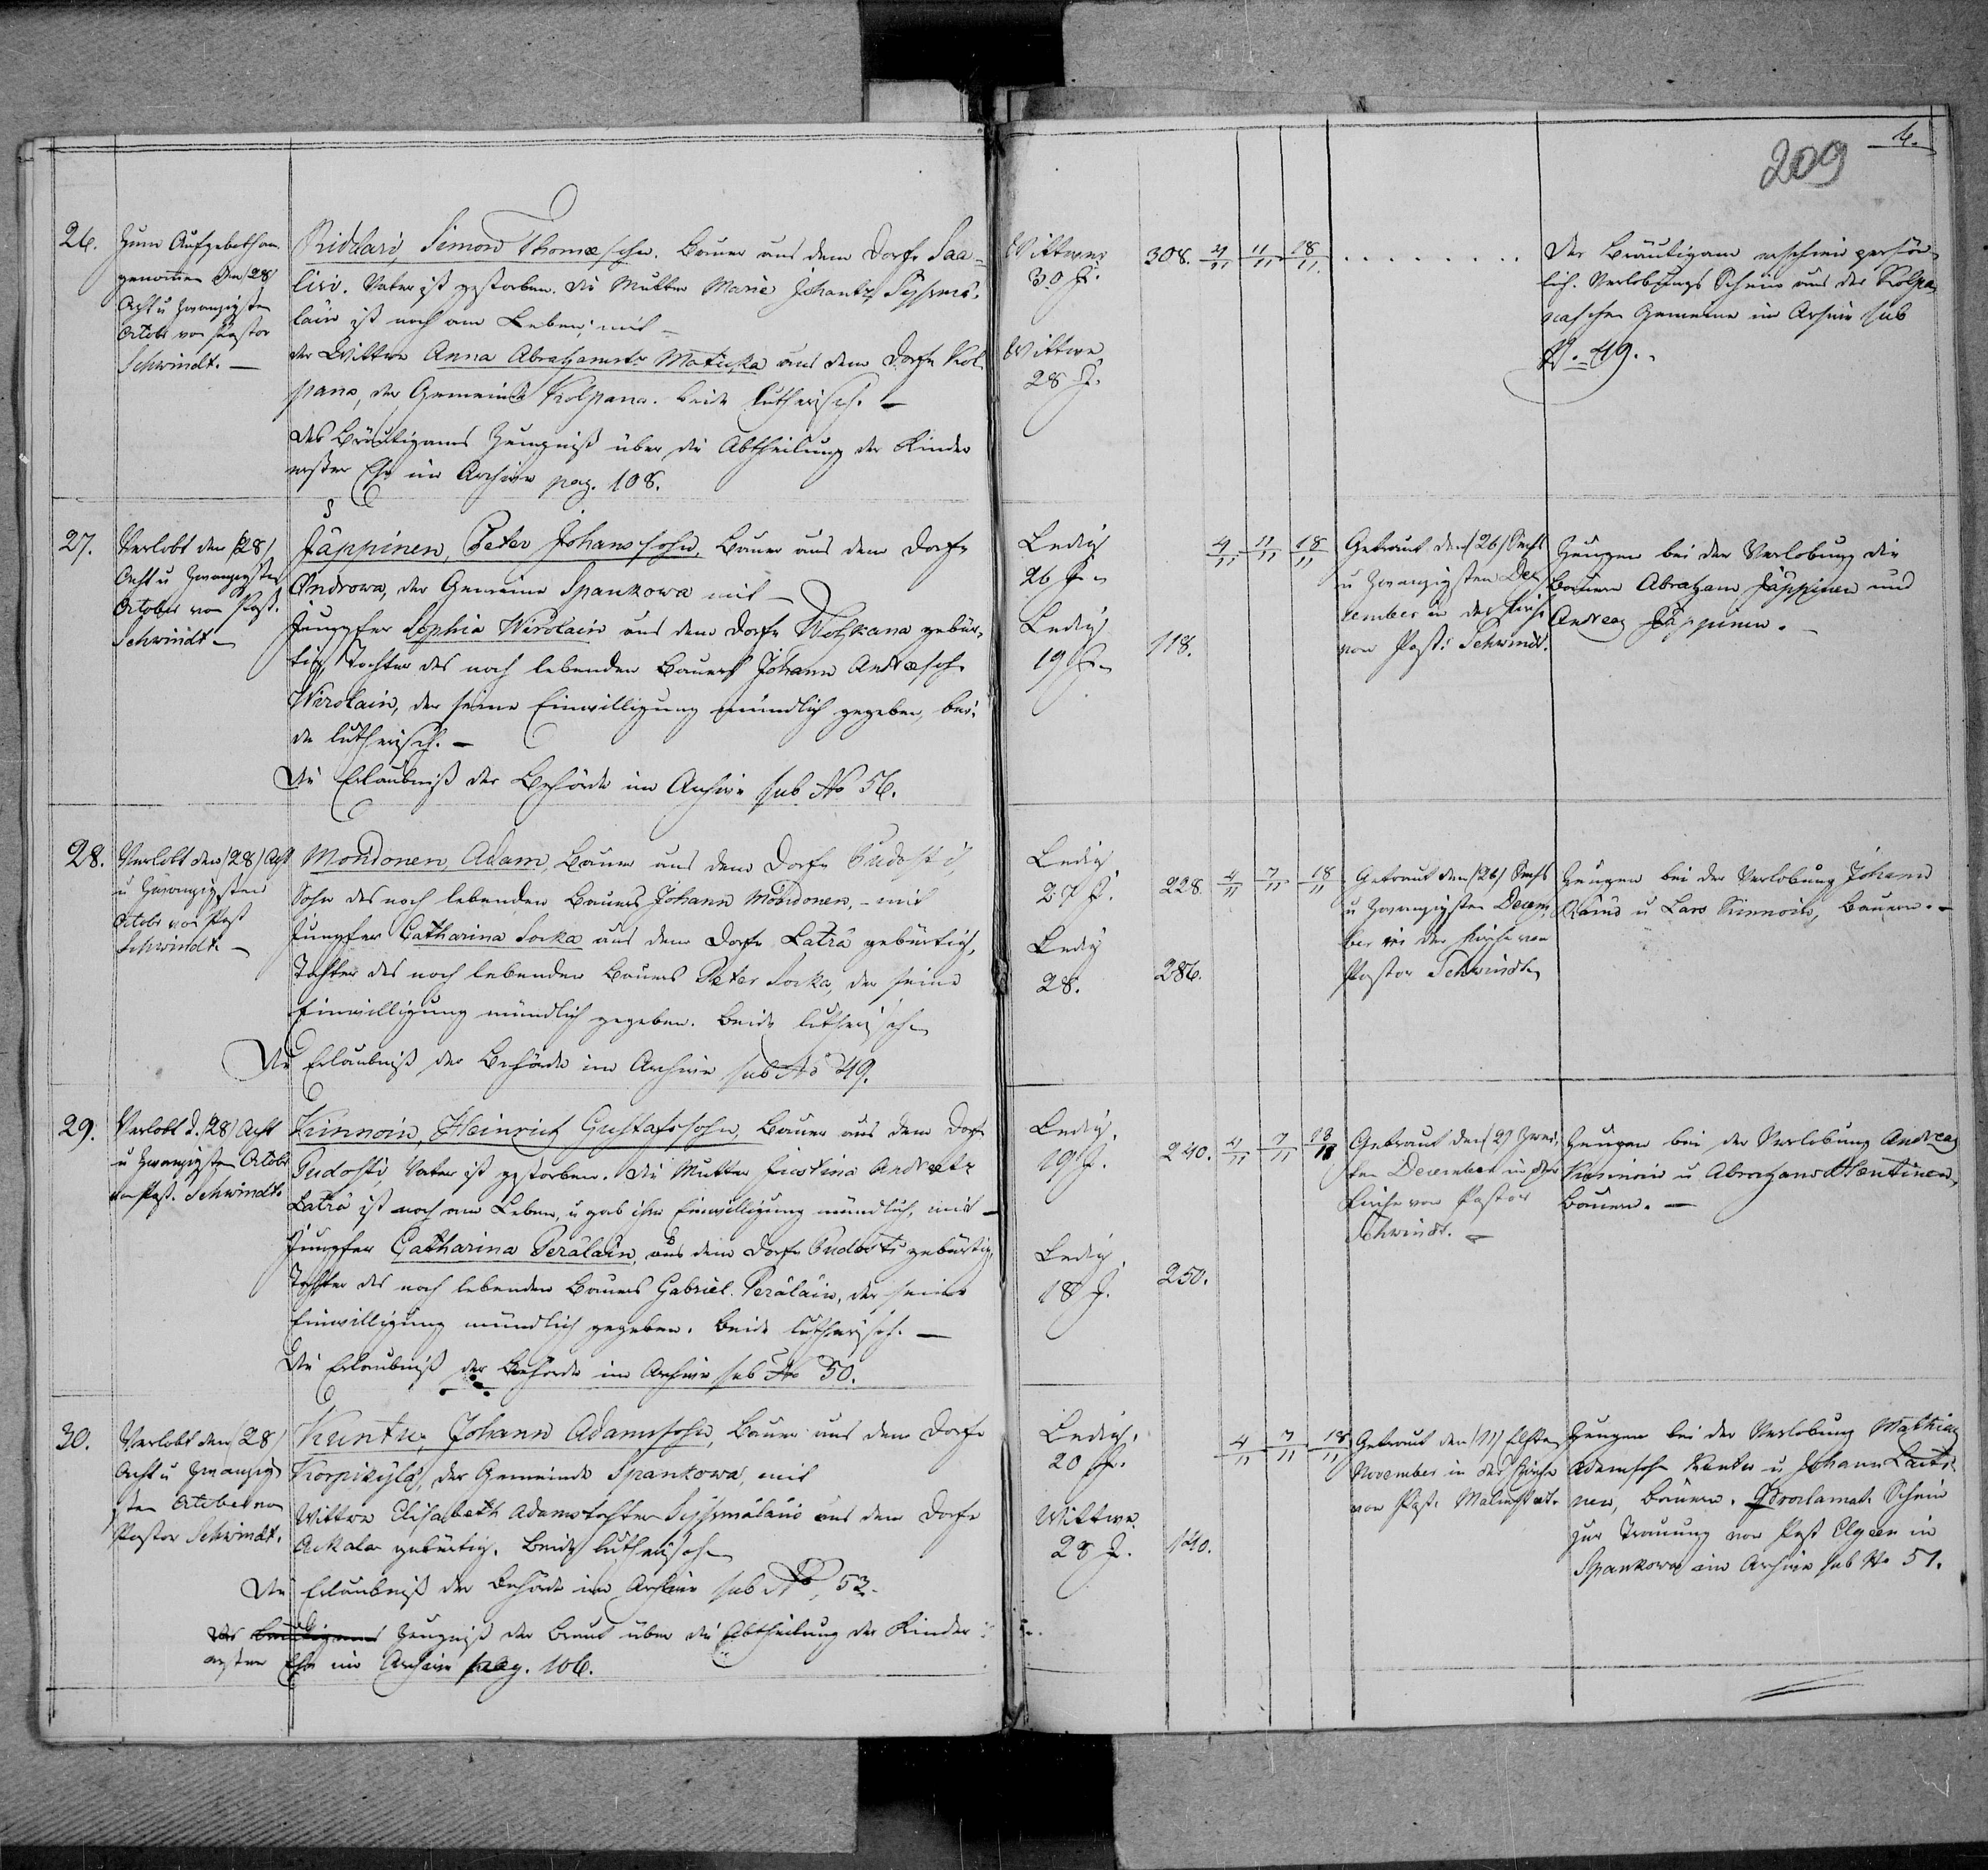 209
26.
Zum Aufgeboth an
genommen den (28)
Acht u zwanzigsten
Octobr von Pastor
Schwindt. —
Riddari, Simon Thomæsohn. Bauer aus dem Dorfe Saa-
lisi. Vater ist gestorben. Die Mutter Maria Johantr
lain ist noch am Leben; mit —
der Wittwe Anna Abrahamstr Matikka aus dem Dorfe Kol-
pana, der Gemeinde Kolpana. beide lutherisch. —
des Bräutigams Zeugniß über die Abtheilung der Kinder
erster Ehe im Archive pag. 108.
Wittwer
30 J.
Wittwe
28 J.
308. 4/11 11/11 18/11.
Der Bräutigam erschien persön-
lich. Verlobungs Schein aus der Kolpa-
naschen Gemeine im Archive sub
N. 49.
27.
Verlobt den (28)
Acht u Zwanzigsten
October von Past.
Schwindt —
Jäppinen, Peter Johanssohn, Bauer aus dem Dorfe
Ondrowa, der Gemeine Spankowa mit —
Jungfer Sophia Wirolain aus dem Dorfe Wolkana gebür-
tig Tochter des noch lebenden Bauers Johann Andræsohn
Wirolain, der seine Einwilligung mündlich gegeben, bei-
de lutherisch. —
Die Erlaubniß der Behörde im Archive sub No 56.
Ledig
26 J.
Ledig
19 J.
118.
4/11 11/11 18/11
Getraut den (26) Sechs
u Zwanzigsten De-
cember in der Kirche
von Past: Schwindt.
Zeugen bei der Verlobung die
Bauern Abraham Jäppinen und
Andreas Jäppinen. —
28.
Verlobt den (28) Acht
u Zwanzigsten
Octobr von Past
Schwindt —
Monsdonen, Adam, Bauer aus dem Dorfe Pudosti,
Sohn des noch lebenden Bauers Johann Monsdonen, - mit
Jungfer Catharina Sorka aus dem Dorfe Laträ gebürtig,
Tochter des noch lebenden Bauers Peter Sorka, der seine
Einwilligung mündlich gegeben. Beide lutherisch
Die Erlaubniß der Behörde im Archive sub No 49.
Ledig
27 J.
Ledig
28.
228. 4/11 7/11 18/11
286.
Getraut den (26) Sechs
u Zwanzigsten Decem-
ber in der Kirche von
Pastor Schwindt
Zeugen bei der Verlobung Johann
u Lars Kinnoin, Bauern. —
29.
Verlobt d. (28) Acht
u Zwanzigsten Octobr
von Past. Schwindt
Kinnoin, Heinrich Gustafssohn, Bauer aus dem Dorfe
Pudosti, Vater ist gestorben. Die Mutter Andrætr
Laträ ist noch am Leben, u gab ihre Einwilligung mündlich, mit —
Jungfer Catharina Perälain, aus dem Dorfe Pudosti gebürtig,
Tochter des noch lebenden Bauers Gabriel Perälain, der seine
Einwilligung mündlich gegeben. Beide lutherisch. —
Die Erlaubniß der Behörde im Archive sub No 50.
Ledig.
19 J.
Ledig.
18 J.
240. 4/11 7/11 18/11
250.
Getraut den (2) Zwei-
ten December in der
Kirche von Pastor
Schwindt. —
Zeugen bei der Verlobung Andreas
Kinnoin u Abraham
Bauern. —
30.
Verlobt den (28)
Acht u Zwanzig
sten October von
Pastor Schwindt.
Kuntu, Johann Adamssohn, Bauer aus dem Dorfe
Korpikylä, der Gemeinde Spankowa, mit
Wittwe Elisabeth Adamstochter aus dem Dorfe
Ackala gebürtig. Beide lutherisch
Die Erlaubniß der Behörde im Archive sub No 52.
Des Bräutigams Zeugniß der Braut über die Abtheilung der Kinder
erster Ehe im Archive pag. 106.
Ledig.
20 J.
Wittwe
28 J.
4/11 7/11 18/11
140.
Getraut den (11) Elften
November in der Kirche
von Past. Malmstaet.
Zeugen bei der Verlobung Mathias
Adamsohn Kuntu u Johann Laiti-
nen, Bauern. Proclamat. Schein
zur Trauung von Past Elgren in
Spankowa im Archive sub No 51.